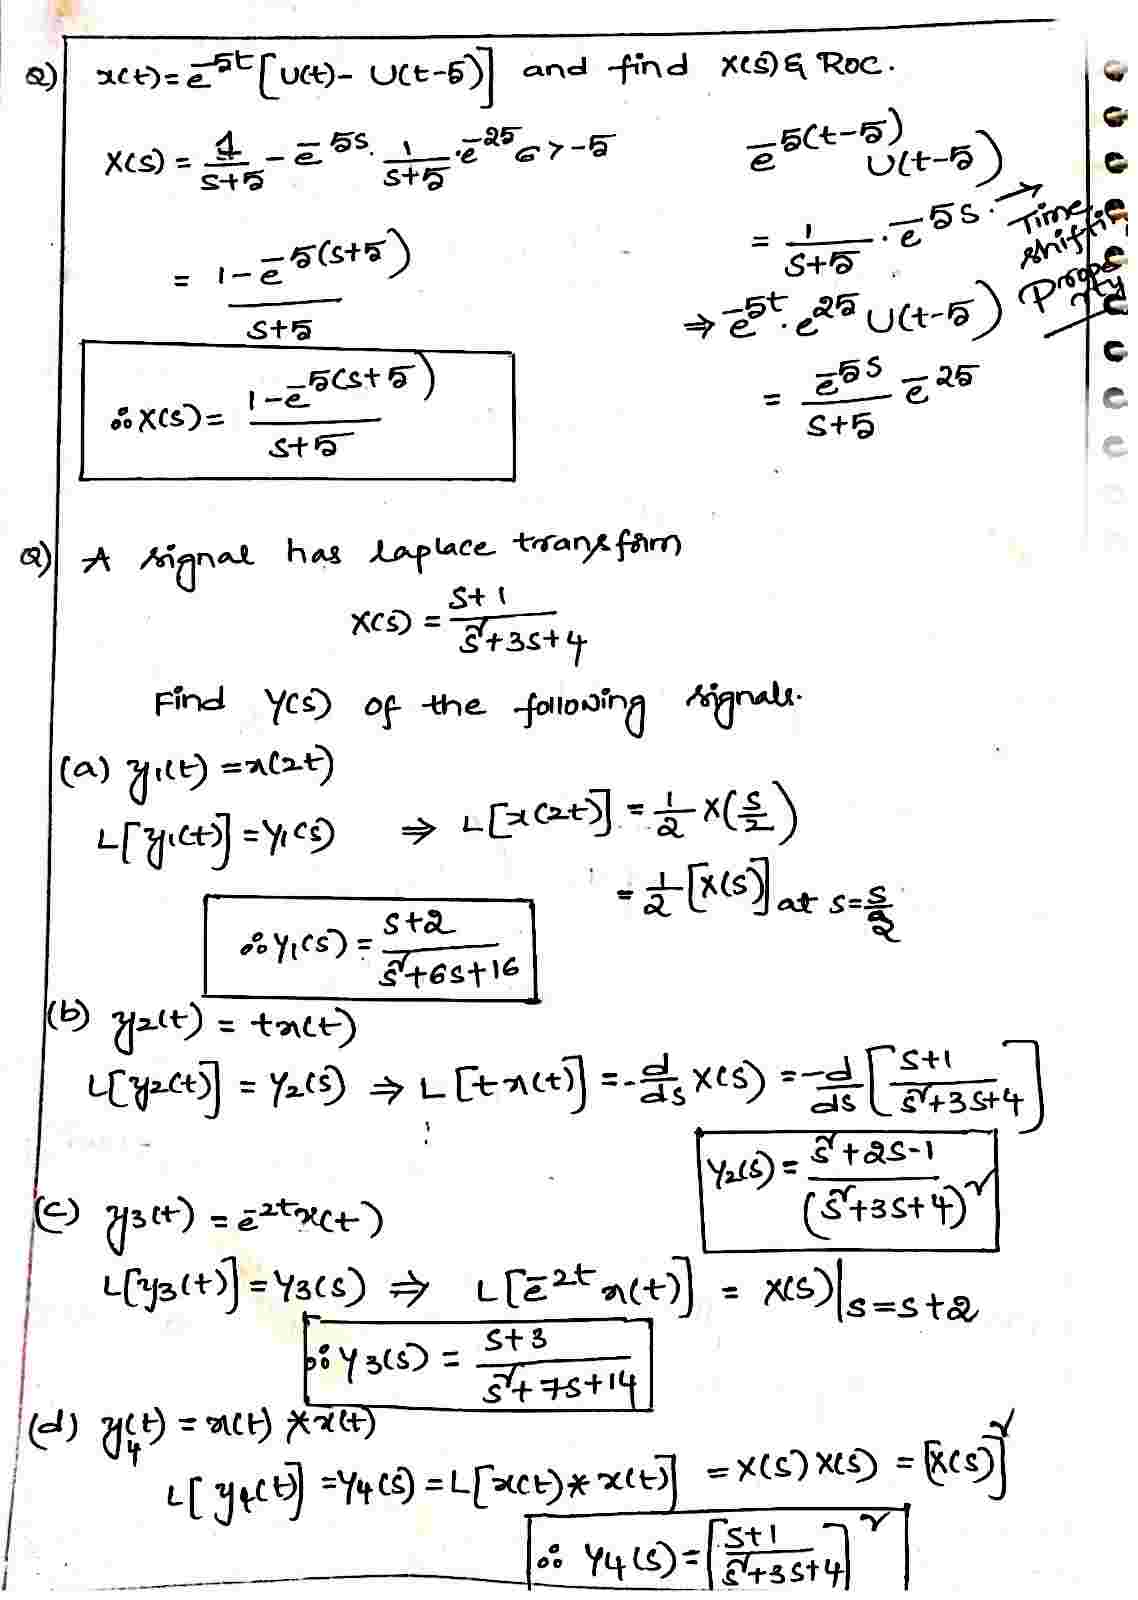 Q) x(t) = e^-5t [U(t) - U(t-5)] and find X(s) & ROC.
X(s) = 1/(s+5) - e^-5s · 1/(s+5) · e^-25 σ > -5
= (1 - e^-5(s+5))/(s+5)
∴ X(s) = (1 - e^-5(s+5))/(s+5)
e^-5(t-5) U(t-5))
= 1/(s+5) · e^-5s · → Time shifting Property
⇒ e^-5t · e^25 U(t-5))
= e^-5s/(s+5) e^-25
Q) A signal has laplace transform
X(s) = (s+1)/(s²+3s+4)
Find Y(s) of the following signals.
(a) y1(t) = x(2t)
L[y1(t)] = Y1(s) ⇒ L[x(2t)] = 1/2 X(s/2)
= 1/2 [X(s)] at s = s/2
∴ Y1(s) = (s+2)/(s²+6s+16)
(b) y2(t) = t x(t)
L[y2(t)] = Y2(s) ⇒ L[t x(t)] = -d/ds X(s) = -d/ds [(s+1)/(s²+3s+4)]
Y2(s) = (s²+2s-1)/(s²+3s+4)²
(c) y3(t) = e^-2t x(t)
L[y3(t)] = Y3(s) ⇒ L[e^-2t x(t)] = X(s)|s=s+2
∴ Y3(s) = (s+3)/(s²+7s+14)
(d) y4(t) = x(t) * x(t)
L[y4(t)] = Y4(s) = L[x(t) * x(t)] = X(s) X(s) = [X(s)]²
∴ Y4(s) = [(s+1)/(s²+3s+4)]²